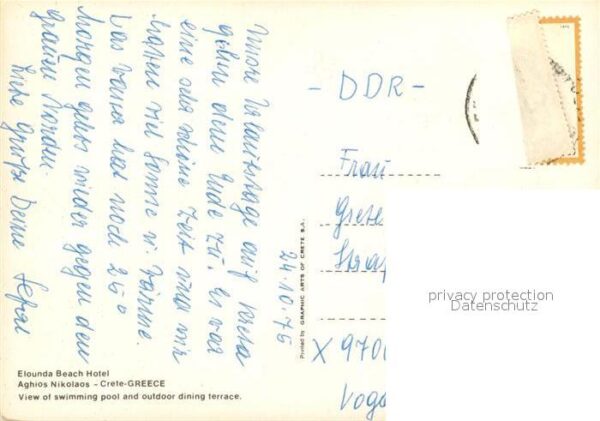 Unsere Urlaubstage auf Kreta
gehen dem Ende zu. Es war
eine sehr schöne Zeit und wir
hatten viel Sonne u. Wärme.
Das Wasser hat noch 25°
Morgen gehts wieder gegen den
grauen Norden.
Liebe Grüße Deine
24.10.75
- DDR -
Frau
Grete
X 970
Vog
Printed by GRAPHIC ARTS OF CRETE S.A.
privacy protection
Datenschutz
Elounda Beach Hotel
Aghios Nikolaos – Crete-GREECE
View of swimming pool and outdoor dining terrace.